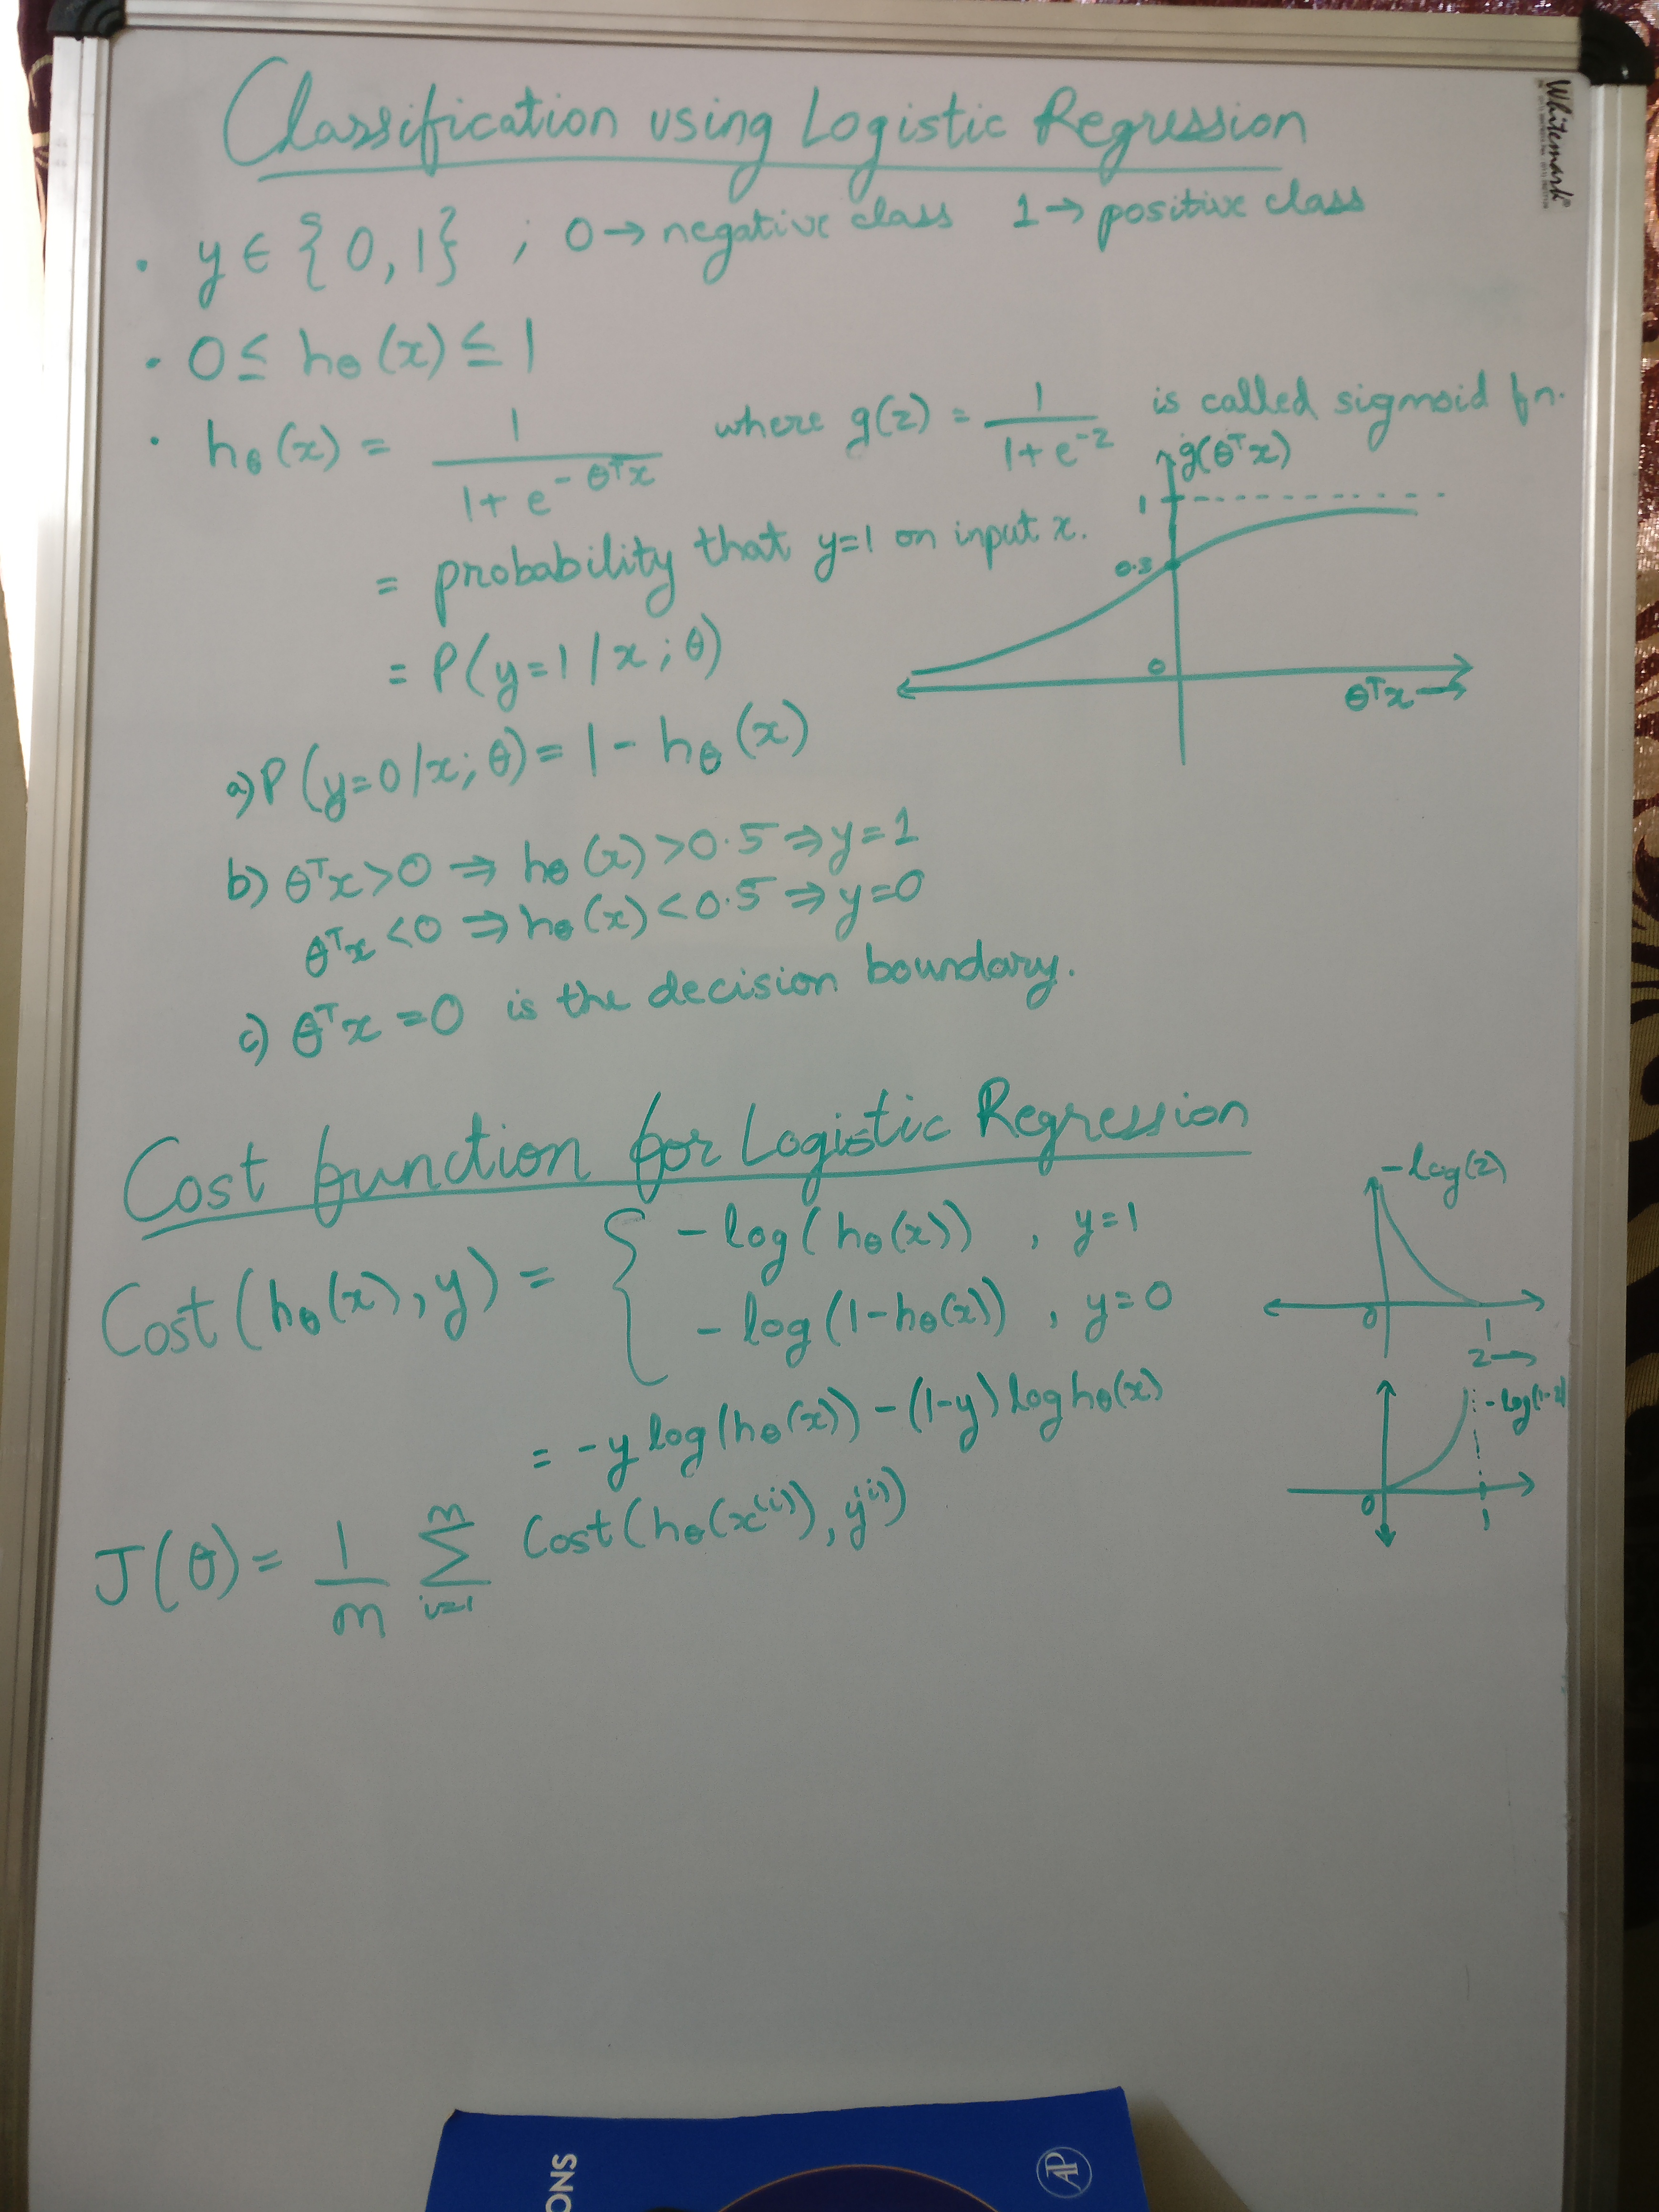 Classification using Logistic Regression
Whitemark®
• y ∈ {0, 1} ; 0 → negative class 1 → positive class
• 0 ≤ hθ(x) ≤ 1
• hθ(x) = 1 / (1 + e^(-θᵀx)) where g(z) = 1 / (1 + e^(-z)) is called sigmoid fn.
= probability that y=1 on input x.
= P(y=1 / x ; θ)
g(θᵀx)
1
0.5
0
θᵀx →
a) P(y=0 / x; θ) = 1 - hθ(x)
b) θᵀx > 0 ⇒ hθ(x) > 0.5 ⇒ y = 1
θᵀx < 0 ⇒ hθ(x) < 0.5 ⇒ y = 0
c) θᵀx = 0 is the decision boundary.
Cost function for Logistic Regression
Cost(hθ(x), y) = { -log(hθ(x)) , y=1
-log(1-hθ(x)) , y=0
= -y log(hθ(x)) - (1-y) log hθ(x)
J(θ) = 1/m Σ_{i=1}^{m} Cost(hθ(x⁽ⁱ⁾), y⁽ⁱ⁾)
-log(z)
0
1
z →
-log(1-z)
0
1
ONS
AP